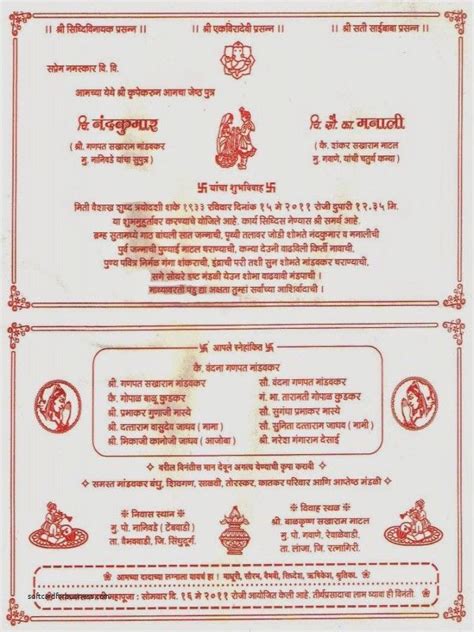 ।। श्री सिध्दिविनायक प्रसन्न ।।
।। श्री एकविरादेवी प्रसन्न ।।
।। श्री सती साईबाबा प्रसन्न ।।
सप्रेम नमस्कार वि. वि.
आमच्या येथे श्री कृपेकरुन आमचा जेष्ठ पुत्र
चि. नंदकुमार
( श्री. गणपत सखाराम मांडवकर
मु. नानिवडे यांचा सुपुत्र )
चि. सौ. कां. मनाली
( कै. शंकर सखाराम माटल
मु. गवाणे, यांची चतुर्थ कन्या )
卐 यांचा शुभविवाह 卐
मिती वैशाख शुध्द त्रयोदशी शके १९३३ रविवार दिनांक १५ मे २०११ रोजी दुपारी १२.३५ मि.
या शुभमुहूर्तावर करण्याचे योजिले आहे. कार्य सिध्दिस नेण्यास श्री समर्थ आहे.
ब्रम्ह सुतामध्ये गाठ बांधली सात जन्माची, पृथ्वी तलावर जोडी शोभते नंदकुमार व मनालीची
पुर्व जन्माची पुण्याई माटल घराण्याची, कन्या देउनी वाढविली किर्ती नावाची.
पुण्य पवित्र निर्मळ गंगा शंकराची, इंद्राची परी तशी सुन शोभते मांडवकर घराण्याची.
सगे सोयरे इष्ट मंडळी येउन शोभा वाढवावी मंडपाची ।
माथ्यावरती पडु द्या अक्षता तुम्हां सर्वांच्या आशिर्वादाची ।
卐 आपले स्नेहांकित 卐
कै. वंदना गणपत मांडवकर
श्री. गणपत सखाराम मांडवकर
सौ. वंदना गणपत मांडवकर
कै. गोपाळ बाबू कुडकर
गं. भा. तारामती गोपाळ कुडकर
श्री. प्रभाकर गुणाजी मास्ये
सौ. सुगंधा प्रभाकर मास्ये
श्री. दत्ताराम वासुदेव जाधव ( मामा )
सौ. सुनिता दत्ताराम जाधव ( मामी )
श्री. भिकाजी कानोजी जाधव ( आजोबा )
श्री. नरेश गंगाराम देसाई
वरील विनंतीस मान देवून अगत्य येण्याची कृपा करावी
समस्त मांडवकर बंधु, शिवगण, साळवी, तोरस्कर, कातकर परिवार आणि आप्तेष्ठ मंडळी
निवास स्थान
मु. पो. नानिवडे ( टेंबवाडी )
ता. वैभववाडी, जि. सिंधुदुर्ग.
विवाह स्थळ
श्री. बाळकृष्ण सखाराम माटल
मु. पो. गवाणे, रेवाळेवाडी
ता. लांजा, जि. रत्नागिरी.
आमच्या दादाच्या लग्नाला यायचं हं । माधुरी, सौरभ, वैभवी, सिध्देश, ऋषिकेश, श्रुतिका.
महापूजा : सोमवार दि. १६ मे २०११ रोजी आयोजित केली आहे. तीर्थप्रसादाचा लाभ घ्यावा ही विनंती.